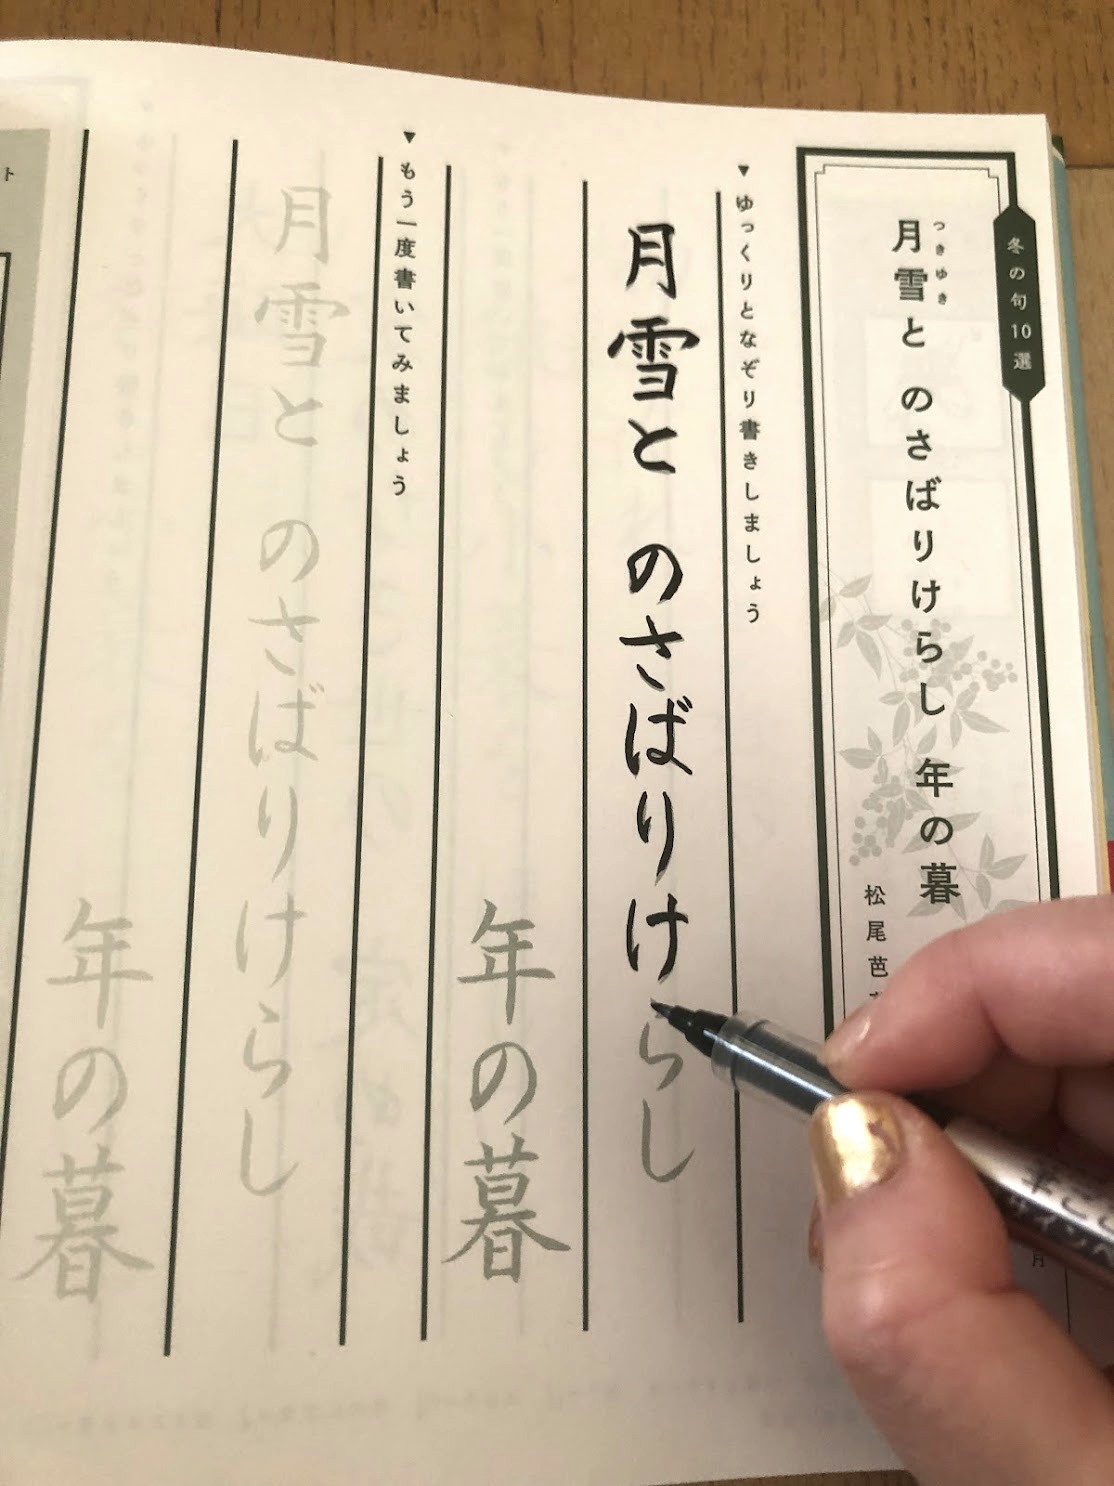 冬の句10選
つきゆき
月雪と のさばりけらし 年の暮
松尾芭
▼ゆっくりとなぞり書きしましょう
月雪と のさばりけらし
年の暮
▼もう一度書いてみましょう
月雪と のさばりけらし
年の暮
ト
月